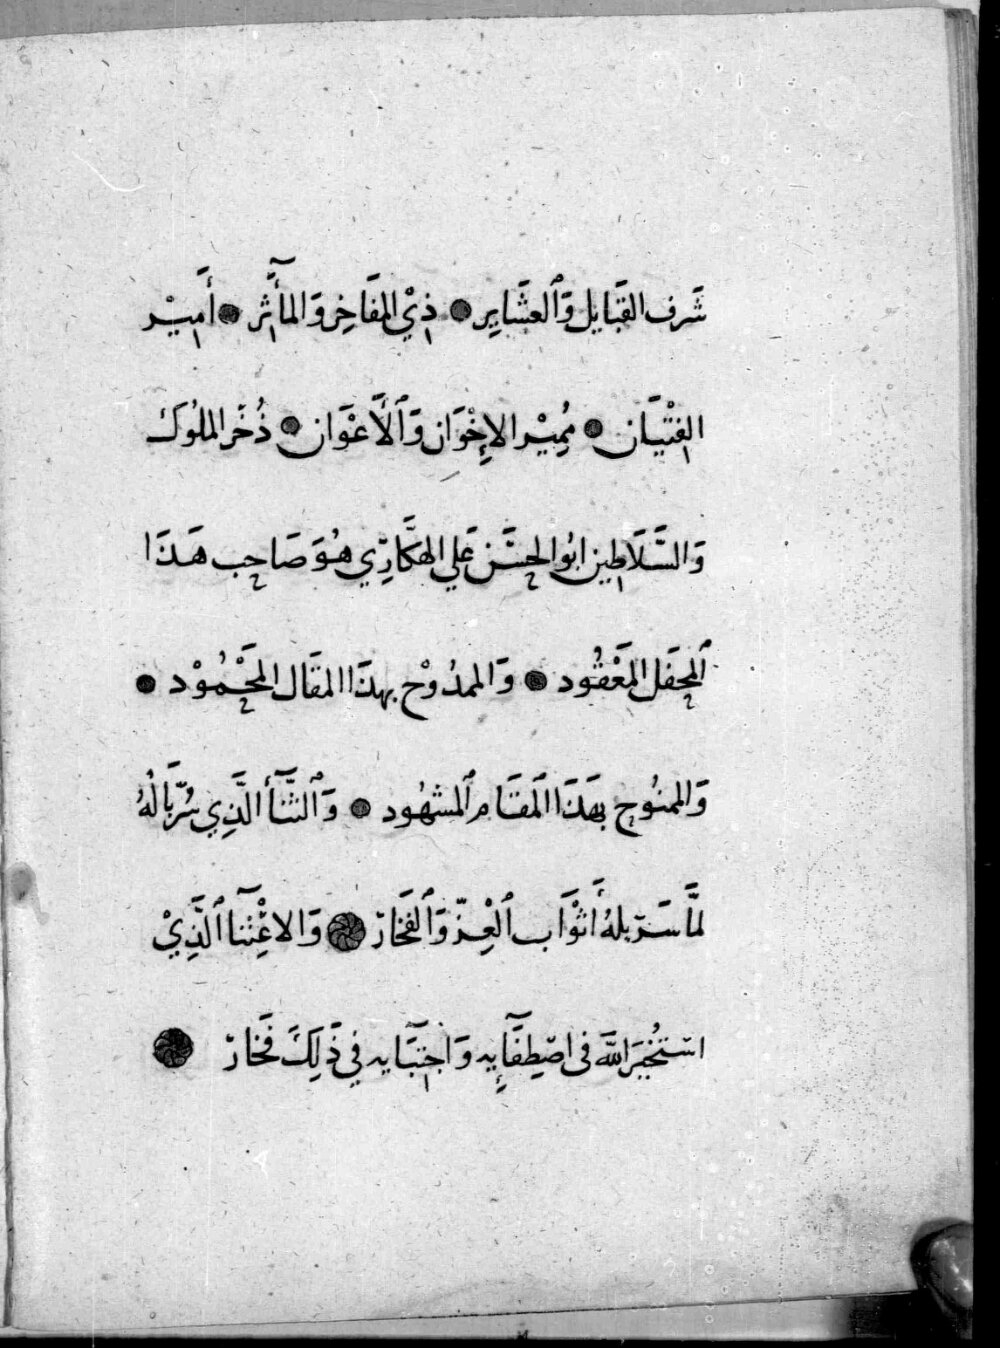 شَرَف القَبَايل وَٱلعشَاير ● ذِيْ المفَاخِر وَالمأَٓثِر ● أَمِيْر
الفِتْيَان ● مُمِيْر الإخْوَان وَٱلأَعْوَان ● ذُخَر الملُوك
وَالسَّلَاطِين ابُو الحسَن عَلي الهكَّارِّي هُوَ صَاحِب هَذَا
ٱلمحفَل المَعْقُود ● وَالممدُوْح بهذَا المقَال المَحْمُوْد ●
وَالممنُوح بهَذَا ٱلمقَام ٱلمشهُود ● وَٱلثَّنَآأ الَّذِي سُرّبَالُهُ
لمَّا سَرّبلهُ أَثوَاب ٱلعِزّ وَٱلفَخارّ وَالاعْتِنَآ ٱلَّذِيْ
استُخيرَ اللهَ في اصْطِفَآيِه وَاجتبَآيه في ذَلِكَ فَخارّ